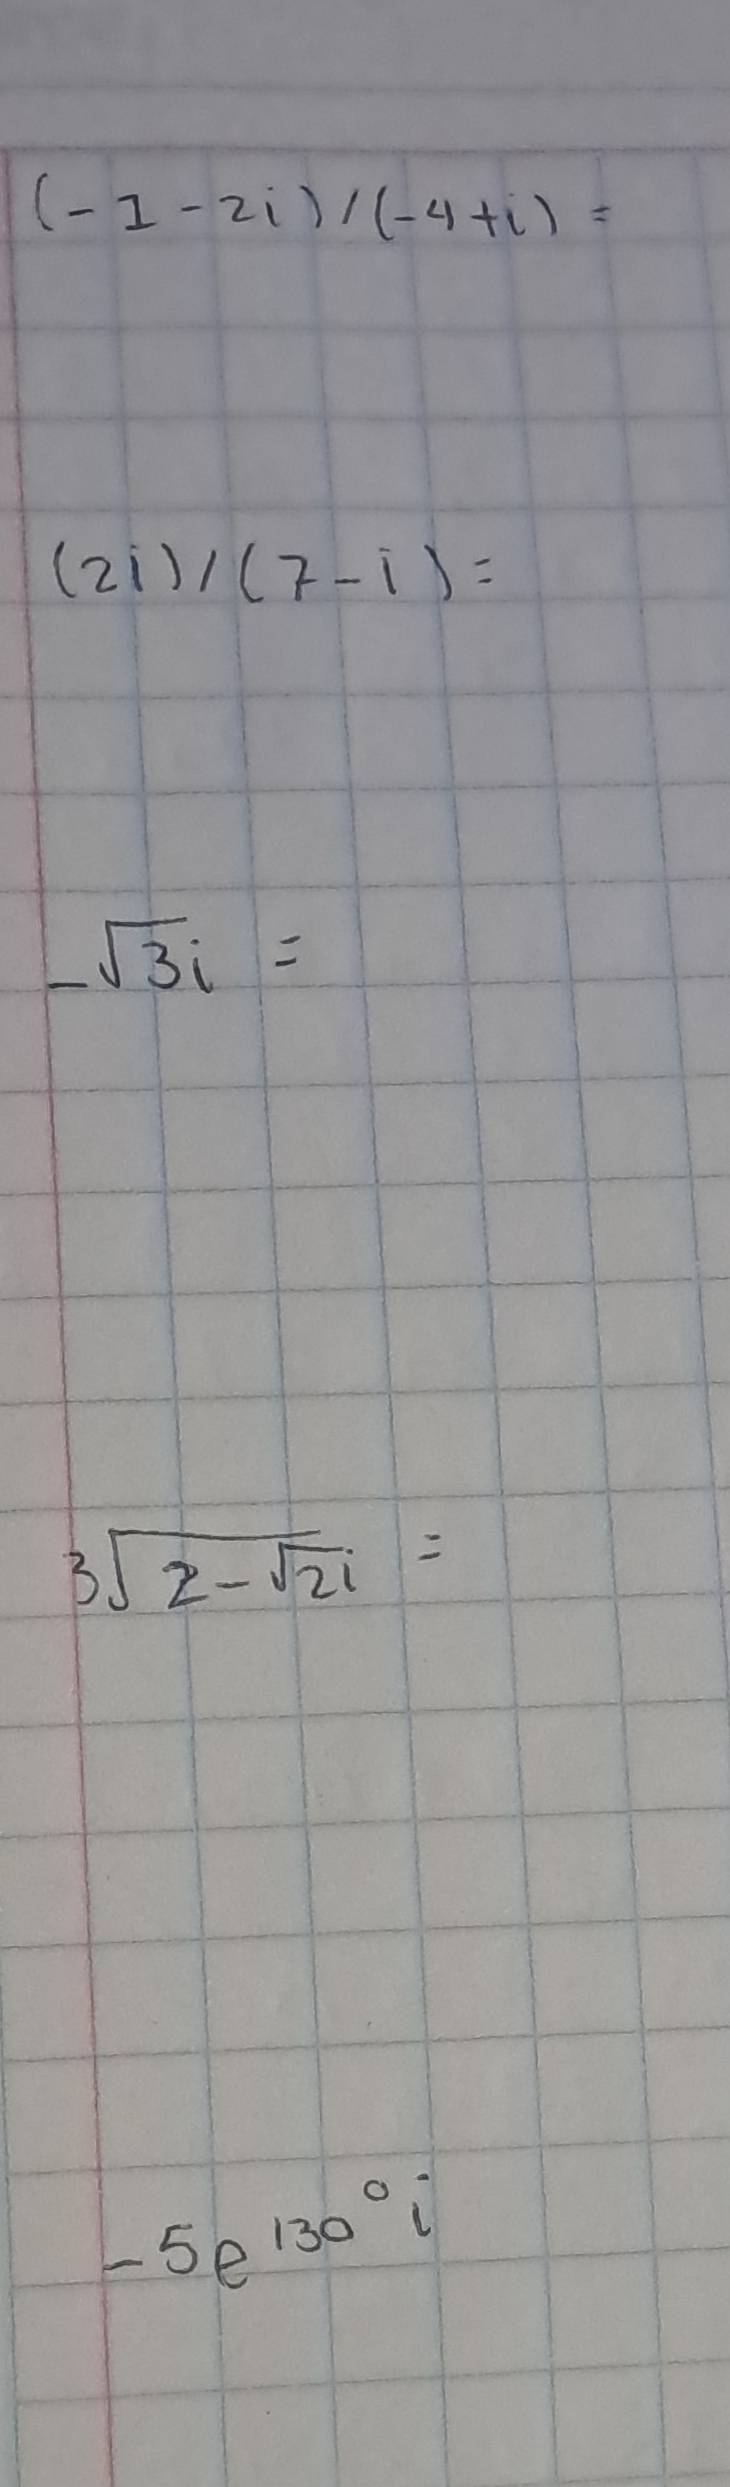 (-1-2i)/(-4+i)=
(2i)/(7-i)=
-√3i =
3√2-√2i =
-5e^130°i